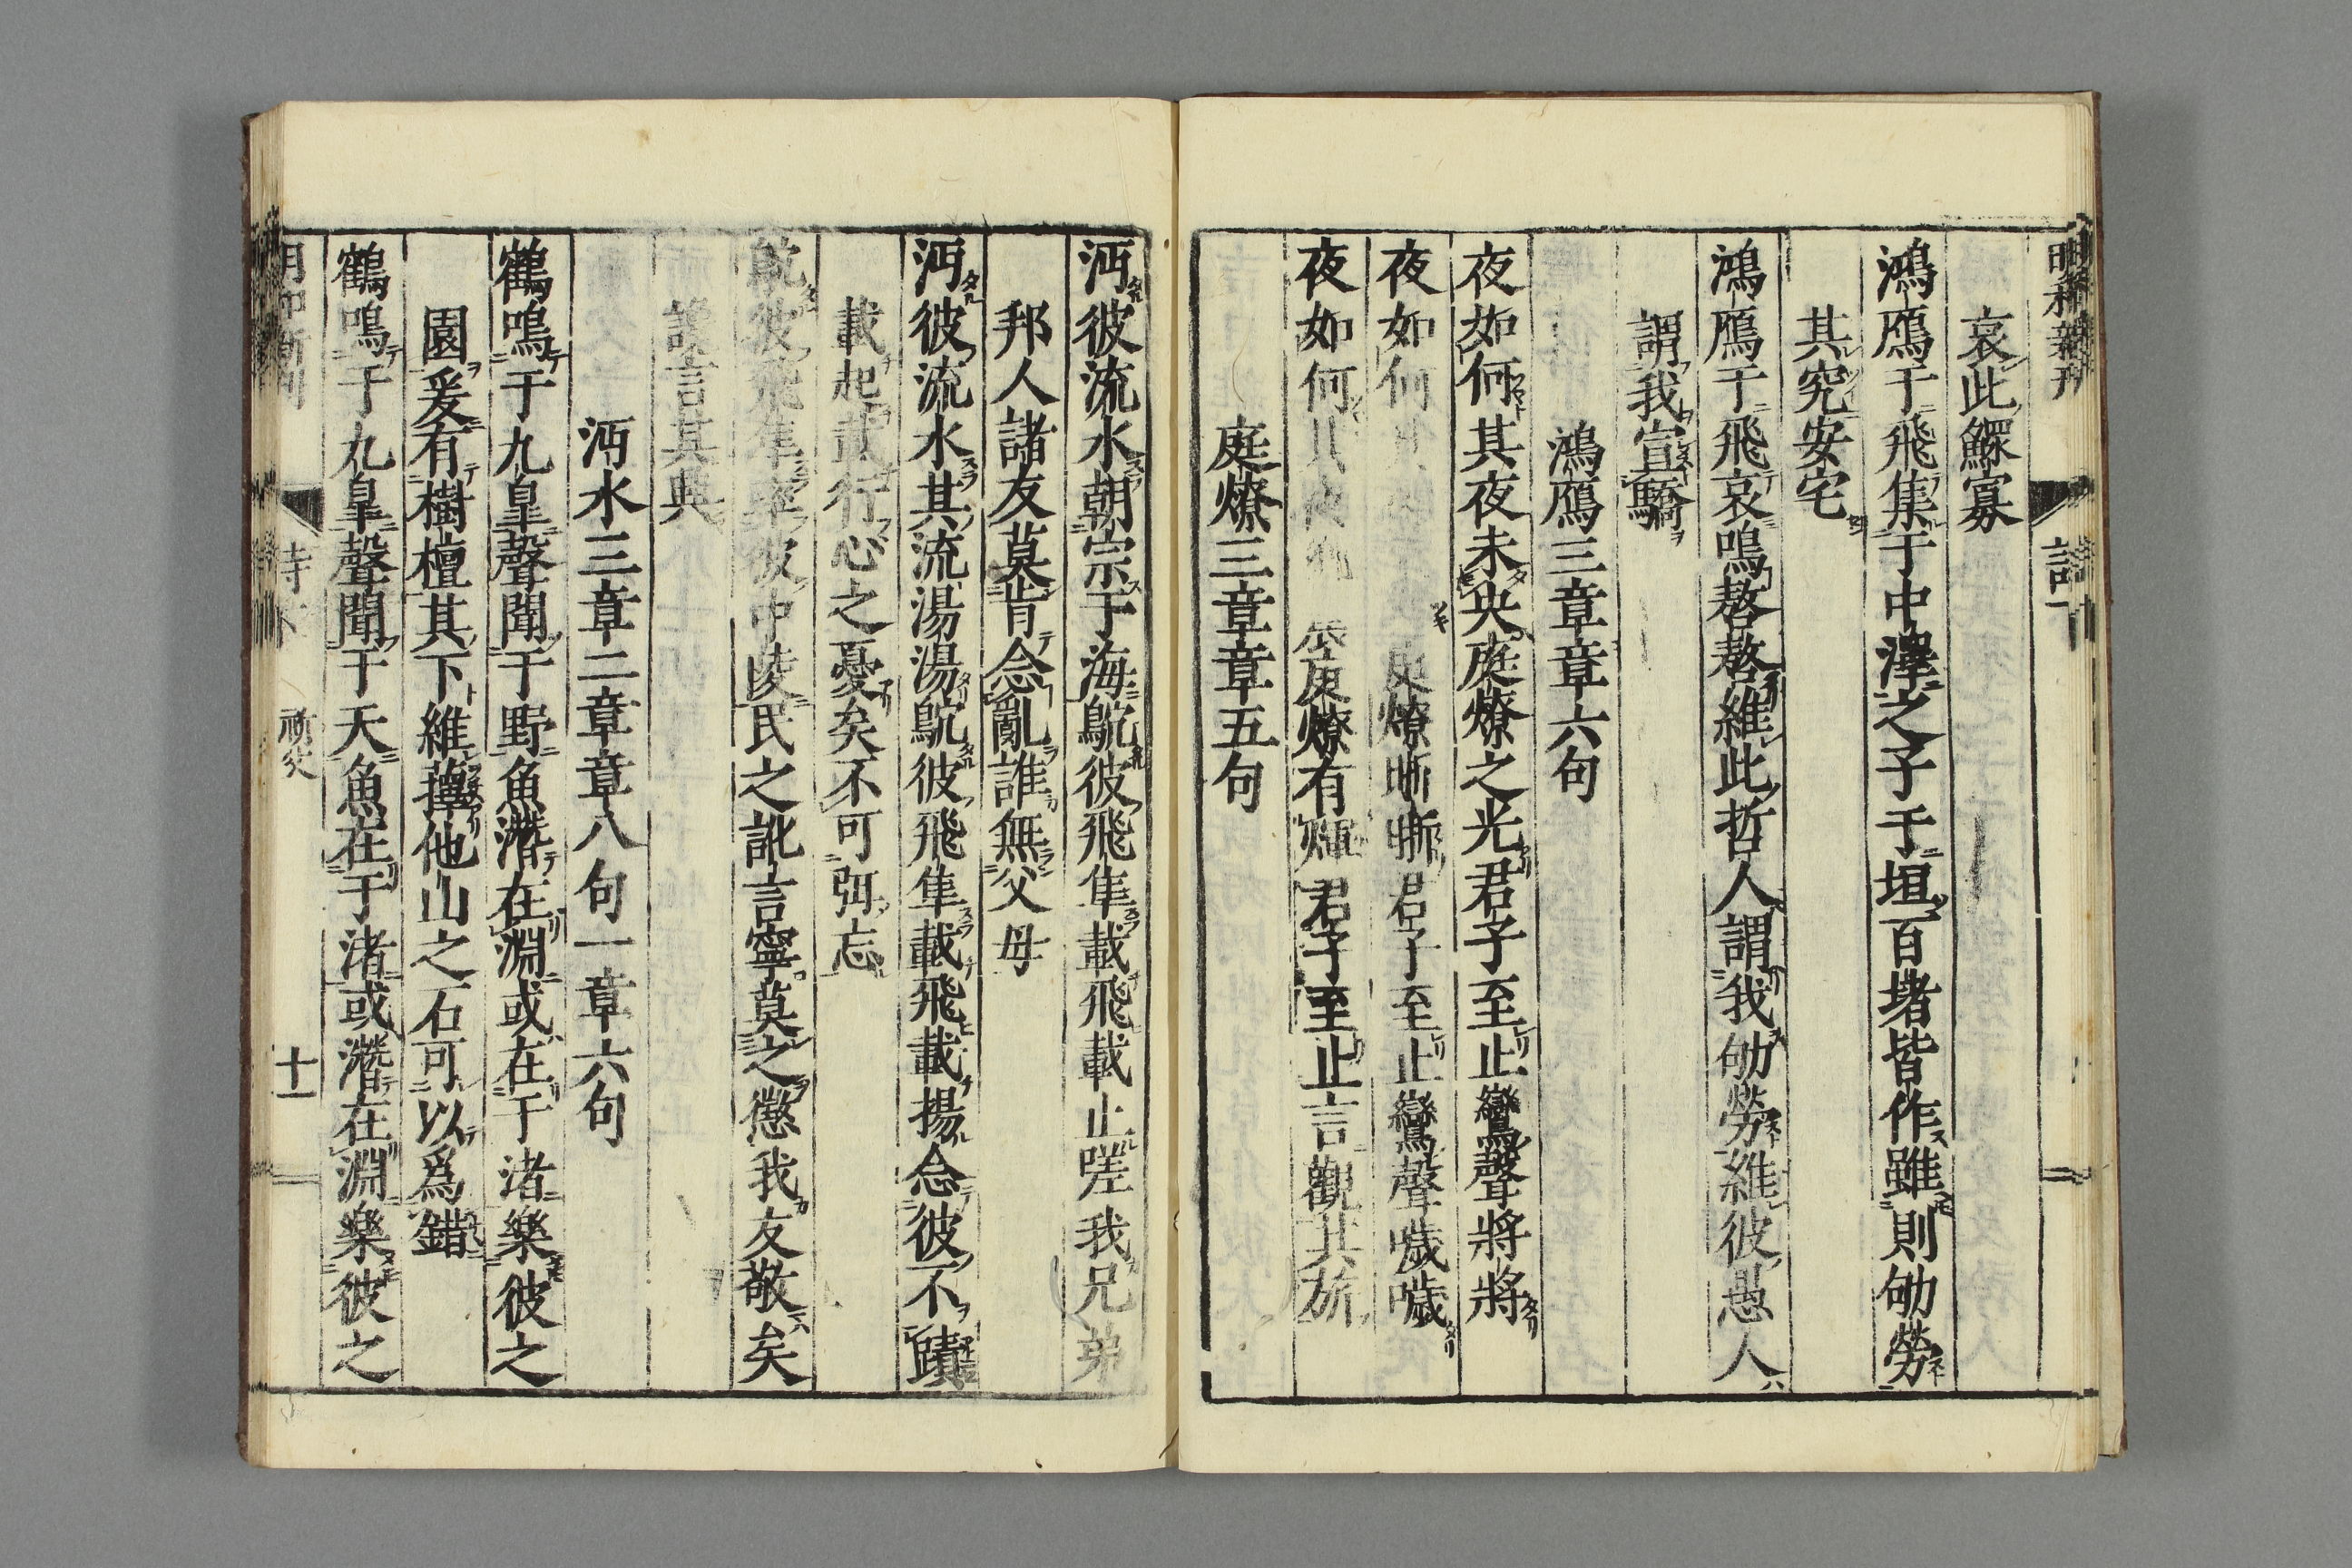 哀此鰥寡
鴻鴈于飛集于中澤之子于垣百堵皆作雖則劬勞
其究安宅
鴻鴈于飛哀鳴嗸嗸維此哲人謂我劬勞維彼愚人
謂我宣驕
鴻鴈三章章六句
夜如何其夜未央庭燎之光君子至止鸞聲將將
夜如何庭燎晰晰君子至止鸞聲噦噦
夜如何其夜庭燎有煇君子至止言觀其旂
庭燎三章章五句
沔彼流水朝宗于海鴥彼飛隼載飛載止嗟我兄弟
邦人諸友莫肯念亂誰無父母
沔彼流水其流湯湯鴥彼飛隼載飛載揚念彼不蹟
載起載行心之憂矣不可弭忘
鴥彼飛隼率彼中陵民之訛言寧莫之懲我友敬矣
讒言其興
沔水三章二章章八句一章六句
鶴鳴于九皐聲聞于野魚潛在淵或在于渚樂彼之
園爰有樹檀其下維蘀他山之石可以爲錯
鶴鳴于九皐聲聞于天魚在于渚或潛在淵樂彼之
十一